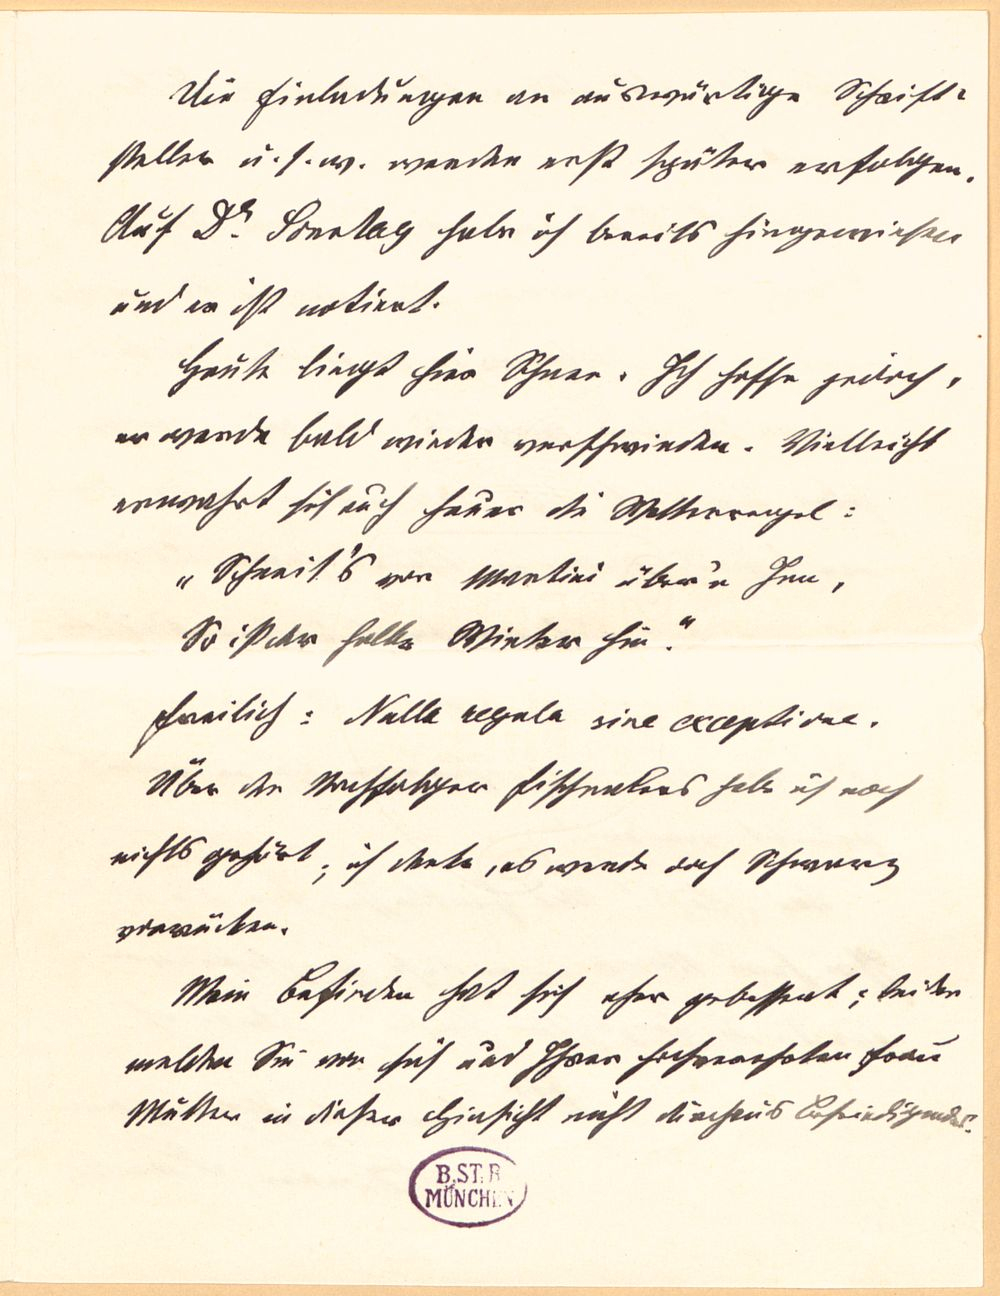 Die Einladungen an auswärtige Schrift-
steller u. s. w. werden erst später erfolgen.
Auf Dr. Sonntag habe ich bereits hingewiesen
und er ist notiert.
Heute liegt hier Schnee. Ich hoffe jedoch,
er werde bald wieder verschwinden. Vielleicht
erwahrt sich auch heuer die Wetterregel:
„Schneit's vor Martini über'n Inn,
So ist der halbe Winter hin."
Freilich: Nulla regula sine exceptione.
Über den Nachfolger habe ich noch
nichts gehört; ich denke, es werde doch Schwarz
vorrücken.
Mein Befinden hat sich eher gebessert; leider
melden Sie von sich und Ihrer hochverehrten Frau
Mutter in dieser Hinsicht nicht durchaus Befriedigendes.
B. ST. B.
MÜNCHEN